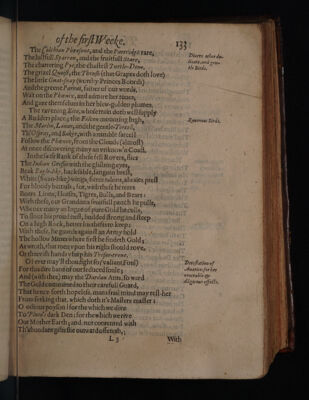 of the first Weeke. 133
The Colchian Pheasant, and the Partridge rare,
The lustfull Sparrow, and the fruitfull Stare,
The chattering Pye, the chastest Turtle-Dove,
The grizel Quoist, the Thrush (that Grapes doth love)
The little Gnat-snap (worthy Princes Boords)
And the greene Parrat, fainer of our words,
Wait on the Phœnix, and admire her tunes,
And gaze themselves in her blew-golden plumes.
The ravening Kite, whose train doth well supply
A Rudders place; the Falcon mounting high,
The Marlin, Lanar, and the gentle Tercell,
Th'Ospray, and Saker, with a nimble sarcell
Follow the Phœnix, from the Clouds (almost)
At once discovering many an unknown Coast.
In the swift Rank of these fell Rovers, flies
The Indian Griffin with the glistring eyes,
Beak Eagle-like, back sable, sanguin brest,
White (Swan-like) wings, fierce talons, alwaies prest
For bloody battails; for, with these he teares
Boars, Lions, Horses, Tigres, Bulls, and Bears:
With these, our Grandams fruitfull panch he pulls,
Whence many an Ingot of pure Gold he culls,
To floor his proud nest, builded strong and steep
On a high Rock, better his thefts to keep:
With these, he guards against an Army bold
The hollow Mines where first he findeth Gold;
As wroth, that men upon his right should rove,
Or theevish hands usurp his Tresor-trove.
O! ever may'st thou fight so (valiant Foul)
For this dire bane of our seduced soule;
And (with thee) may the Dardan Ants, so ward
The Gold committed to their carefull Guard,
That hence-forth hopeless, mans frail mind may rest-her
From seeking that, which doth it's Maisters maister:
O odious poyson! for the which we dive
To Pluto's dark Den: for the which we rive
Our Mother Earth; and, not contented with
Th'abundant gifts she outward offereth,
L 3 With
Ravenous Birds.
Detestation of
Avarice, for her
execrable &
dangerous effects.